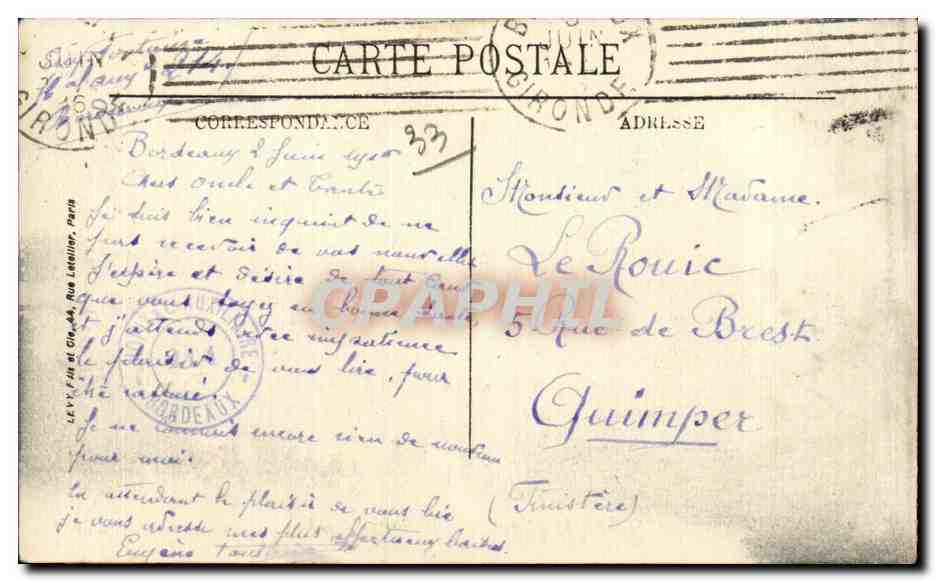 CARTE POSTALE
CORRESPONDANCE
ADRESSE
33
BORDEAUX
JUIN
GIRONDE
Bordeaux 2 Juin
Chers Oncle et Tante
Je suis bien inquiet de ne
pas recevoir de vos nouvelles
J'espère et désire de tout cœur
que vous soyez en bonne santé
et j'attends avec impatience
le plaisir de vous lire, pour
être rassuré.
Je ne connais encore rien de nouveau
pour moi.
En attendant le plaisir de vous lire
je vous adresse mes plus affectueux baisers.
Eugène
Monsieur et Madame.
Le Rouic
5 Rue de Brest
Quimper
(Finistère)
LEVY, Fils et Cie, 44, Rue Letellier, Paris
AUXILIAIRE
BORDEAUX
CPAPHIL